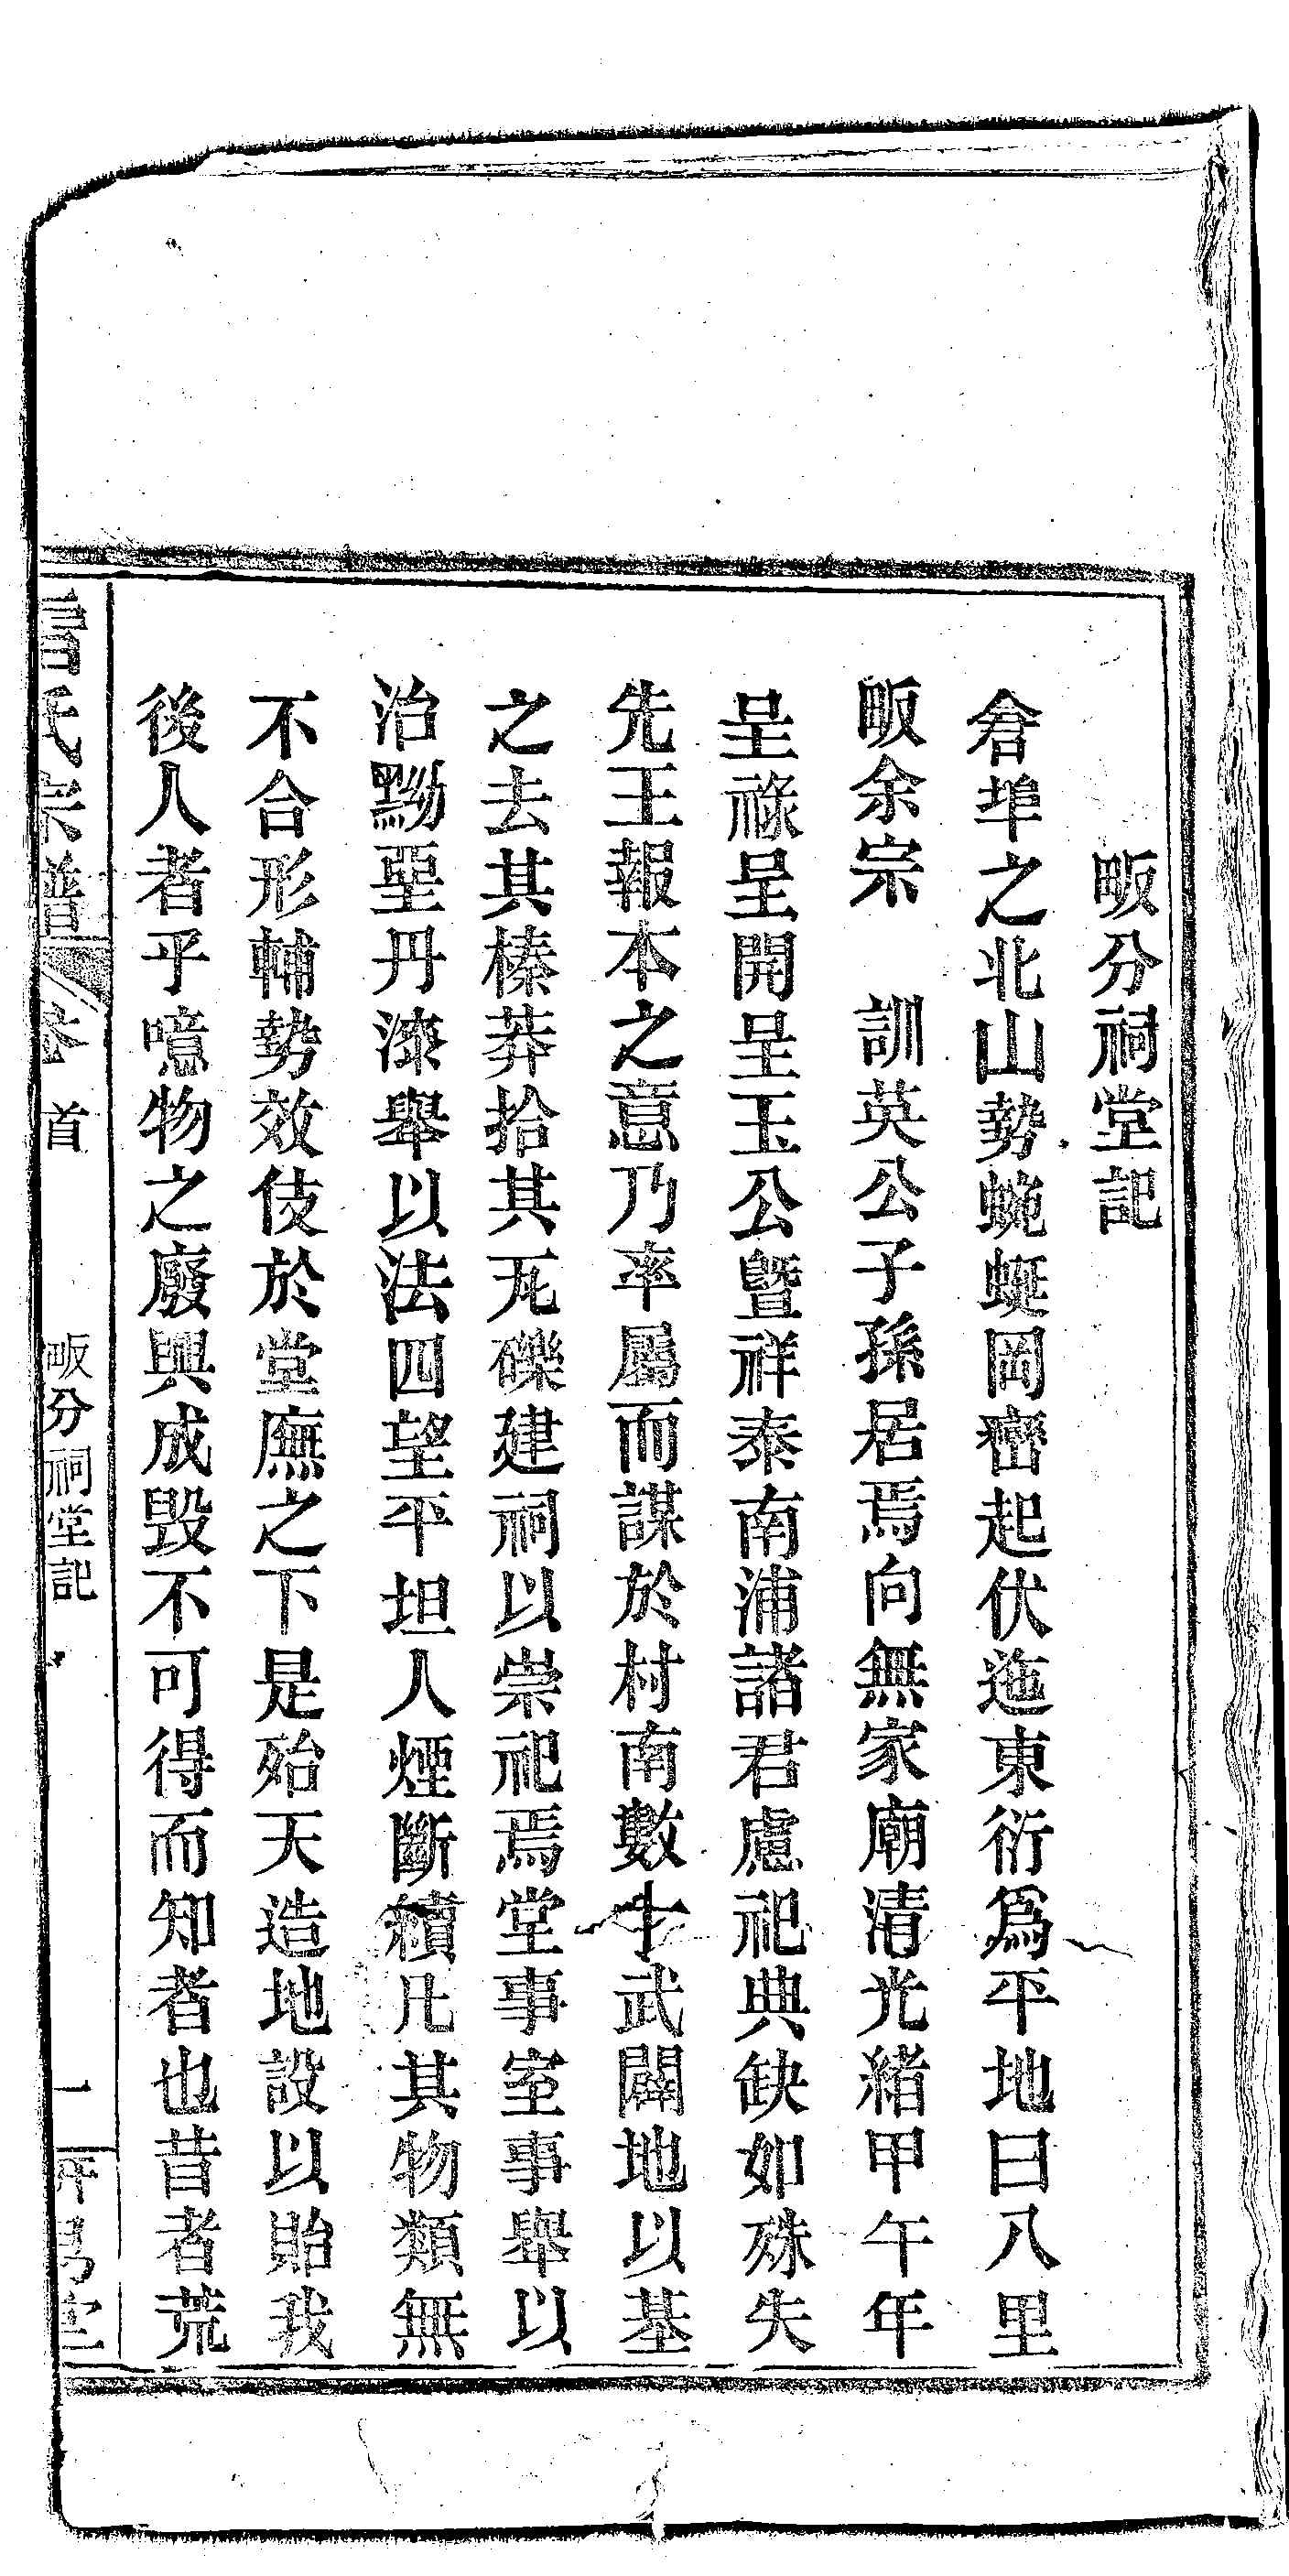 畈分祠堂記
倉埠之北山勢蜿蜒岡巒起伏迤東衍爲平地曰八里
畈余宗　訓英公子孫居焉向無家廟清光緒甲午年
呈祿呈開呈玉公暨祥泰南浦諸君慮祀典缺如殊失
先王報本之意乃率屬而謀於村南數十武闢地以基
之去其榛莽拾其瓦礫建祠以崇祀焉堂事室事舉以
治黝堊丹漆舉以法四望平坦人煙斷續凡其物類無
不合形輔勢效伎於堂廡之下是殆天造地設以貽我
後人者乎噫物之廢興成毀不可得而知者也昔者荒
氏宗譜
卷首
畈分祠堂記
一
堂